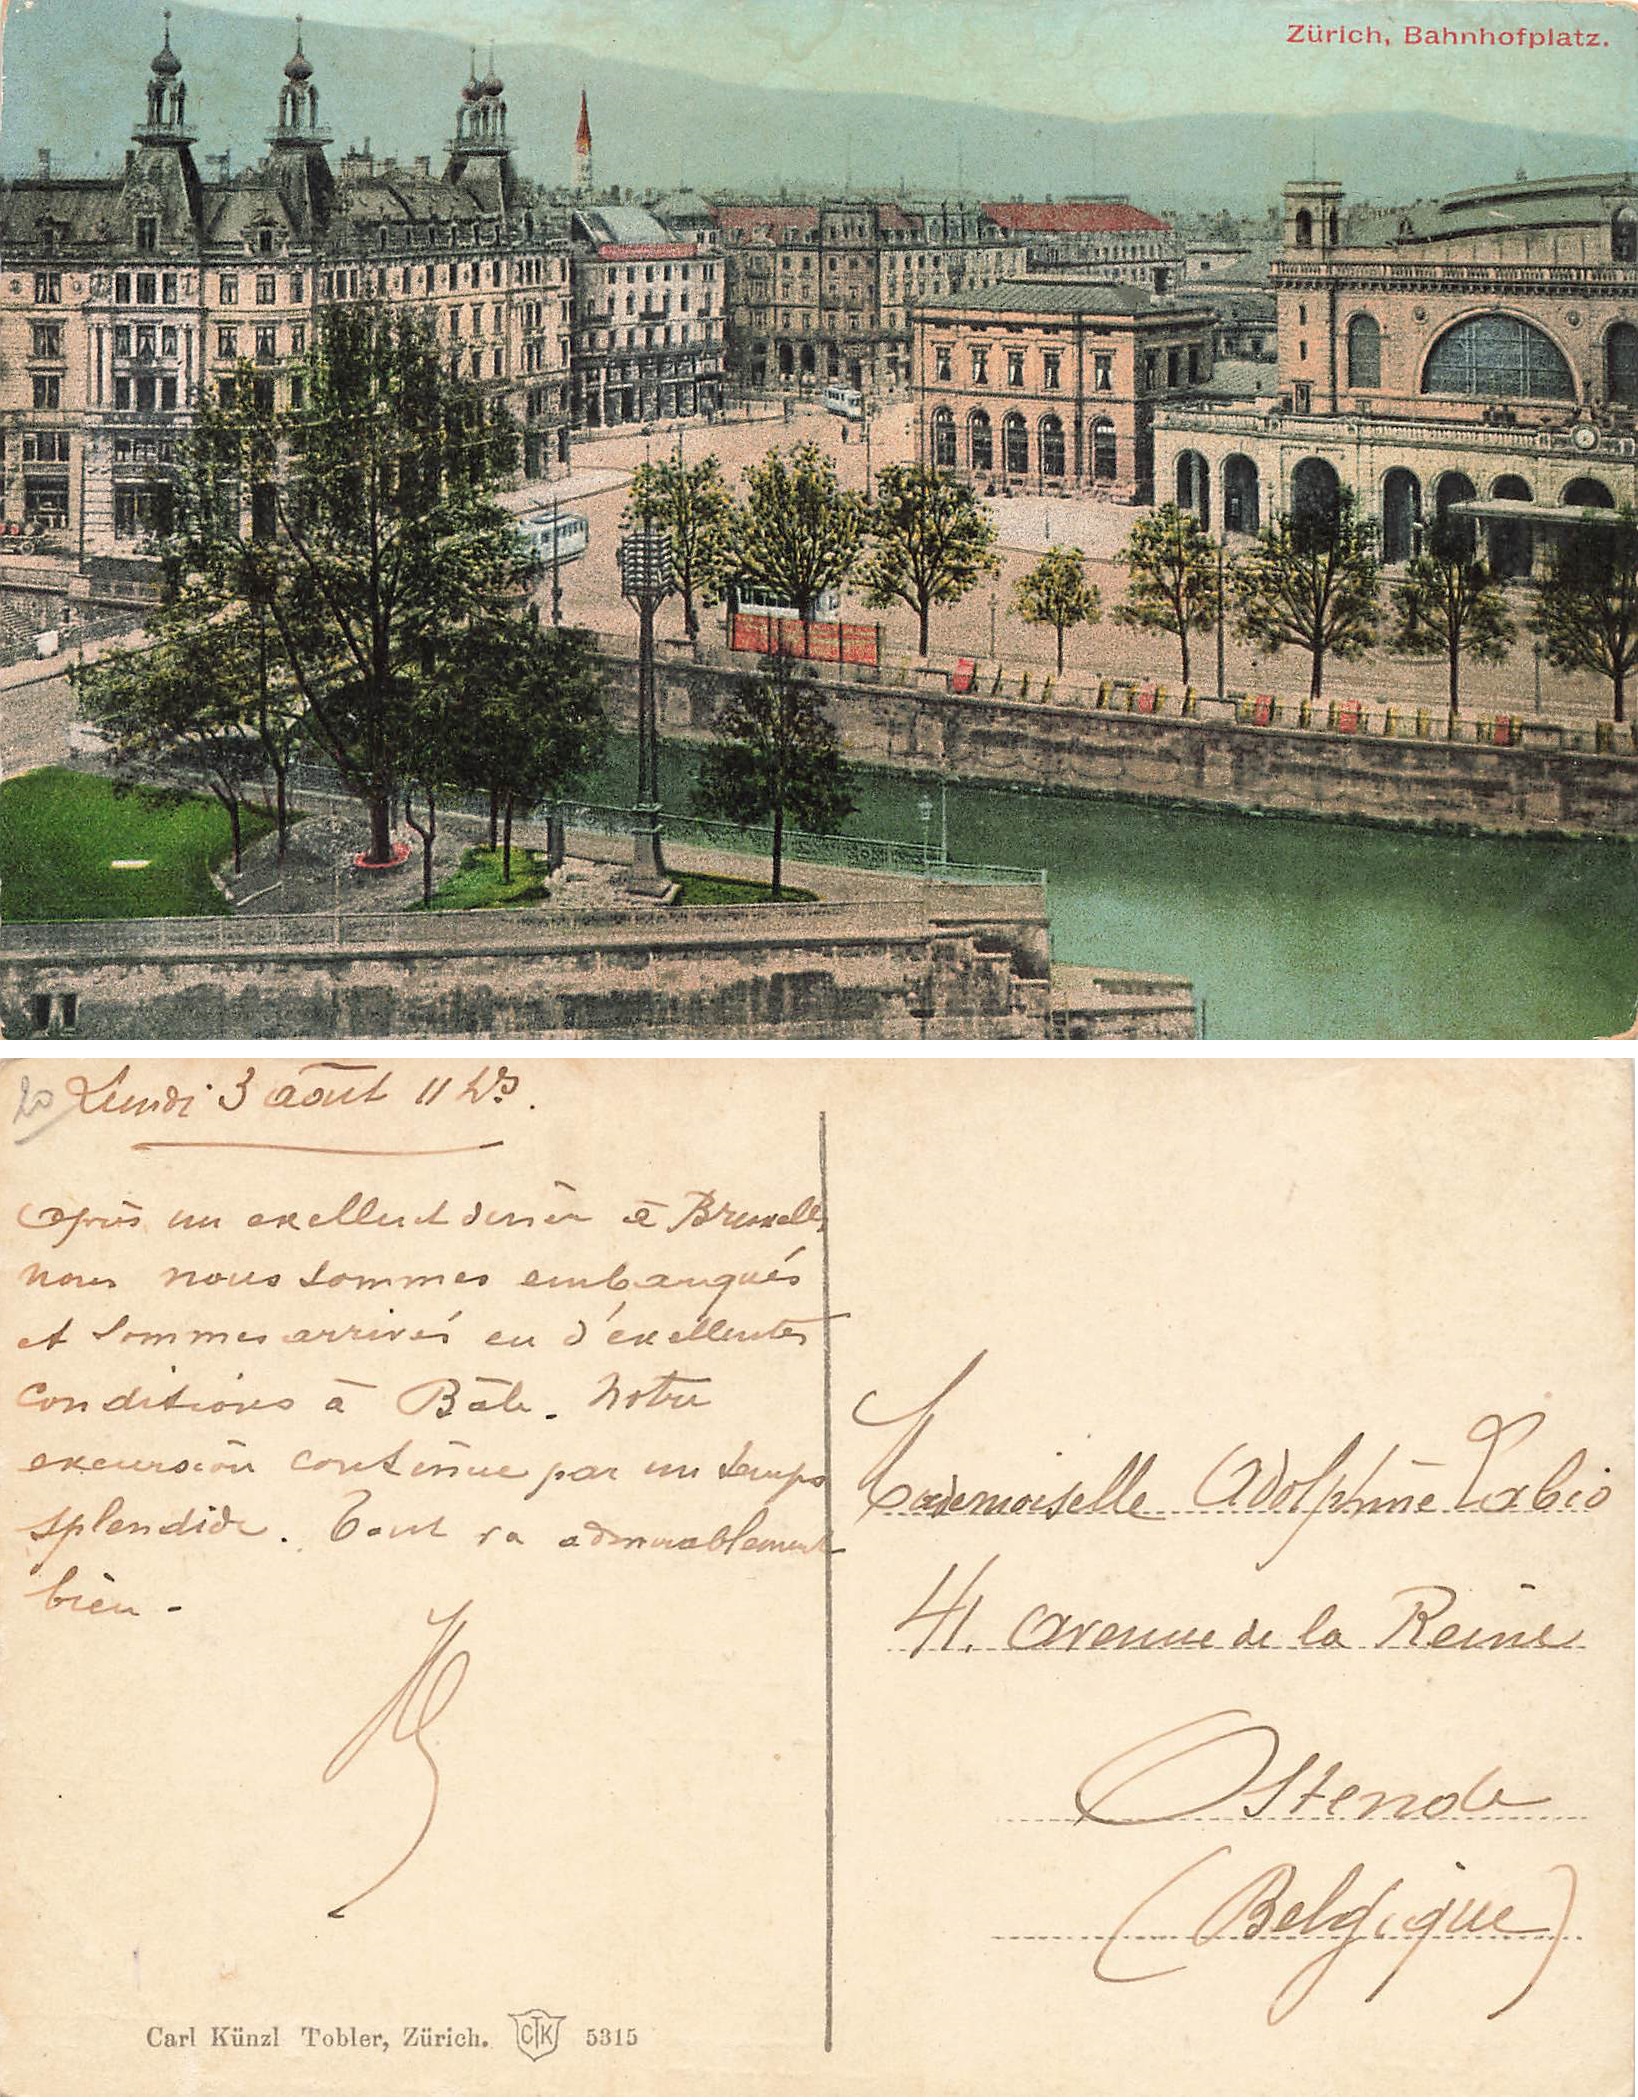 Zürich, Bahnhofplatz.
20 Lundi 3 août 11 hrs.
Après un exellent diner à Bruxelles
nous nous sommes embarqués
et sommes arrivés en d'exellentes
conditions à Bâle. Notre
excursion continue par un temps
splendide. Tout va admirablement
bien.
Mademoiselle Adolphine
41. avenue de la Reine
Ostende
(Belgique)
Carl Künzl Tobler, Zürich. CTK 5315